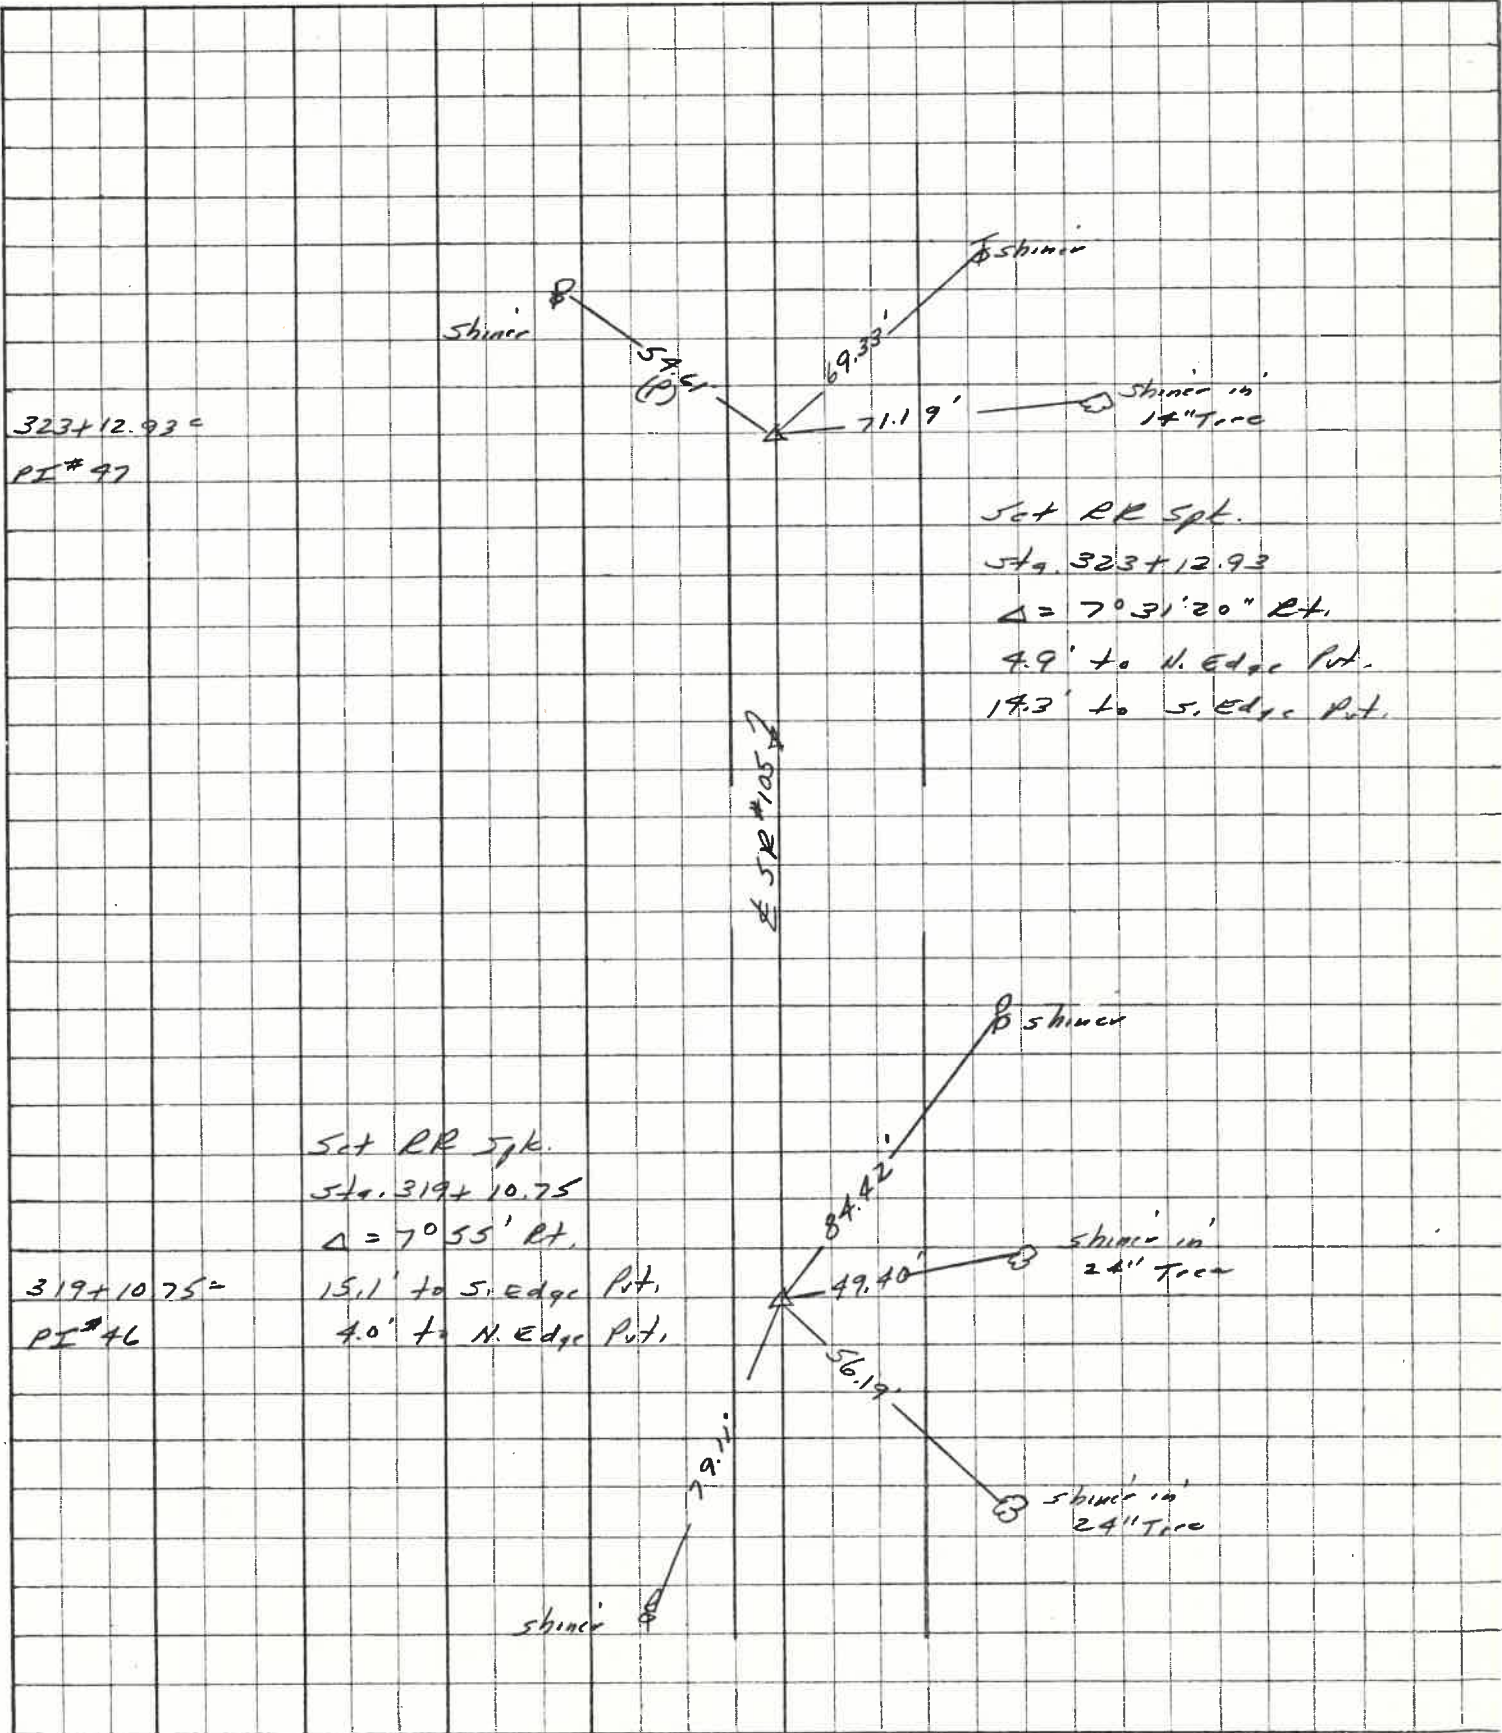 shiner
shiner
54.61
(P)
69.33'
71.19'
shiner in
14" Tree
323+12.93=
PI#47
Set RR Spk.
Sta. 323+12.93
Δ = 7°31'20" Rt.
4.9' to N. Edge Pvt.
14.3' to S. Edge Pvt.
℄ SR #105
shiner
Set RR Spk.
Sta. 319+10.75
Δ = 7°55' Rt.
15.1' to S. Edge Pvt.
4.0' to N. Edge Pvt.
319+10.75=
PI#46
84.42'
49.40'
shiner in
24" Tree
56.19'
79.11'
shiner in
24" Tree
shiner